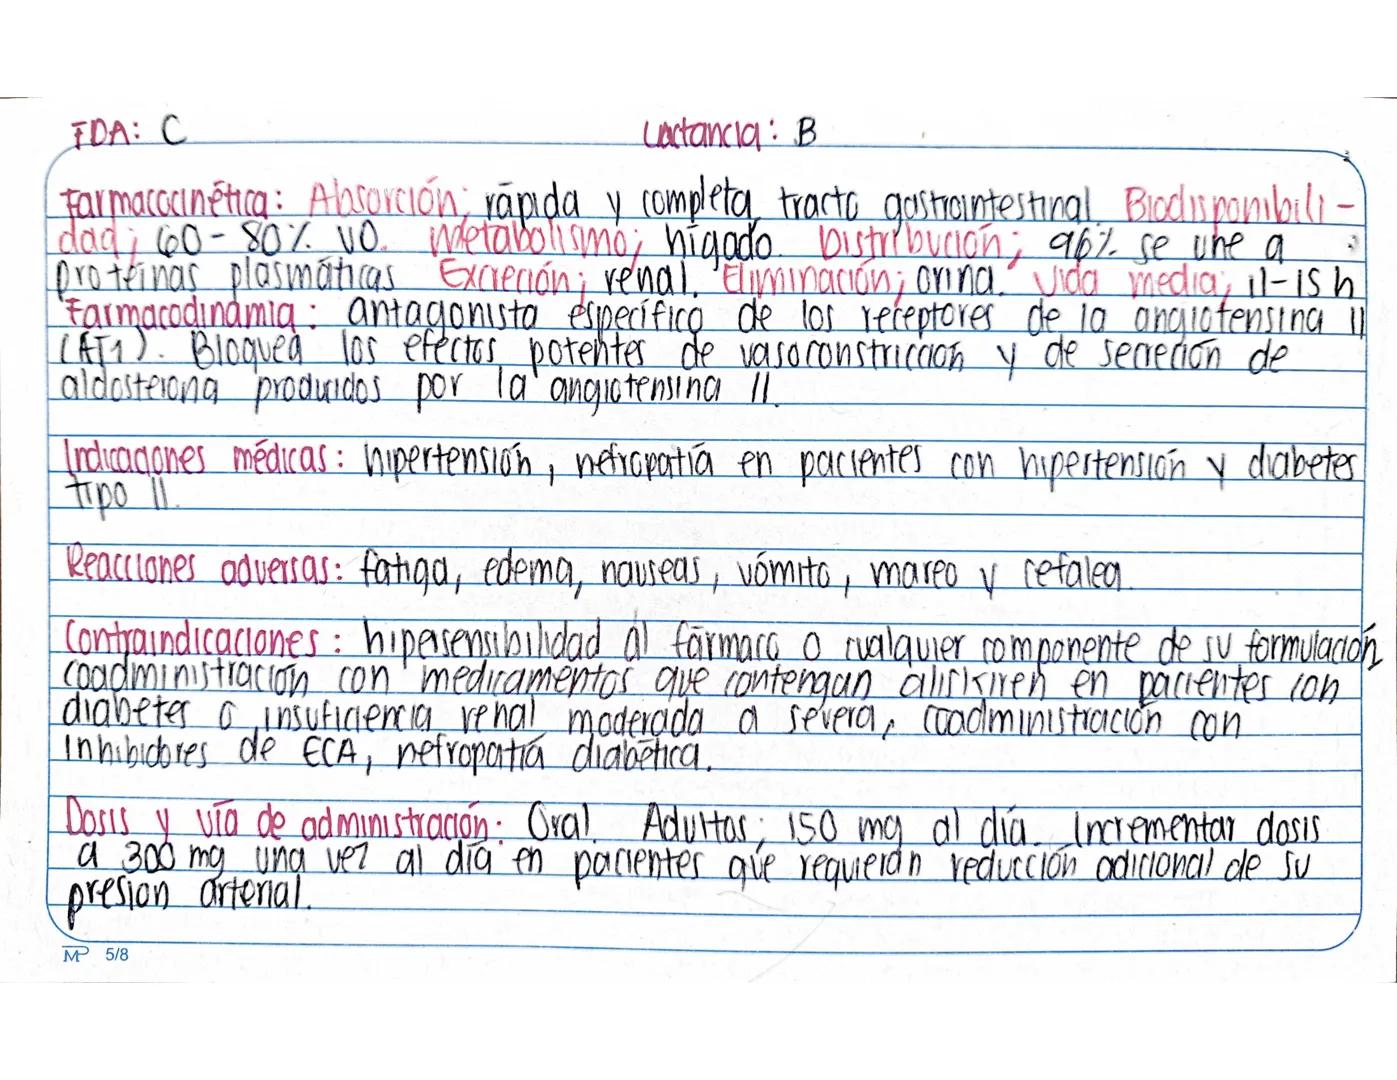 FDA: C Lactancia: B
Farmacocinética: Absorción; rápida y completa, tracto gastrointestinal. Biodisponibili-
dad; 60-80% VO. Metabolismo; hígado. Distribución; 96% se une a
proteínas plasmáticas Excreción; renal. Eliminación; orina. Vida media; 11-15 h
Farmacodinamia: antagonista específico de los receptores de la angiotensina II
(AT1). Bloquea los efectos potentes de vasoconstricción y de secreción de
aldosterona producidos por la angiotensina II.
Indicaciones médicas: hipertensión, nefropatía en pacientes con hipertensión y diabetes
tipo II.
Reacciones adversas: fatiga, edema, nauseas, vómito, mareo y cefalea.
Contraindicaciones: hipersensibilidad al fármaco o cualquier componente de su formulación,
coadministración con medicamentos que contengan aliskiren en pacientes con
diabetes o insuficiencia renal moderada a severa, coadministración con
inhibidores de ECA, nefropatía diabética.
Dosis y vía de administración: Oral. Adultos; 150 mg al día. Incrementar dosis
a 300 mg una vez al día en pacientes que requieran reducción adicional de su
presion arterial.
MP 5/8